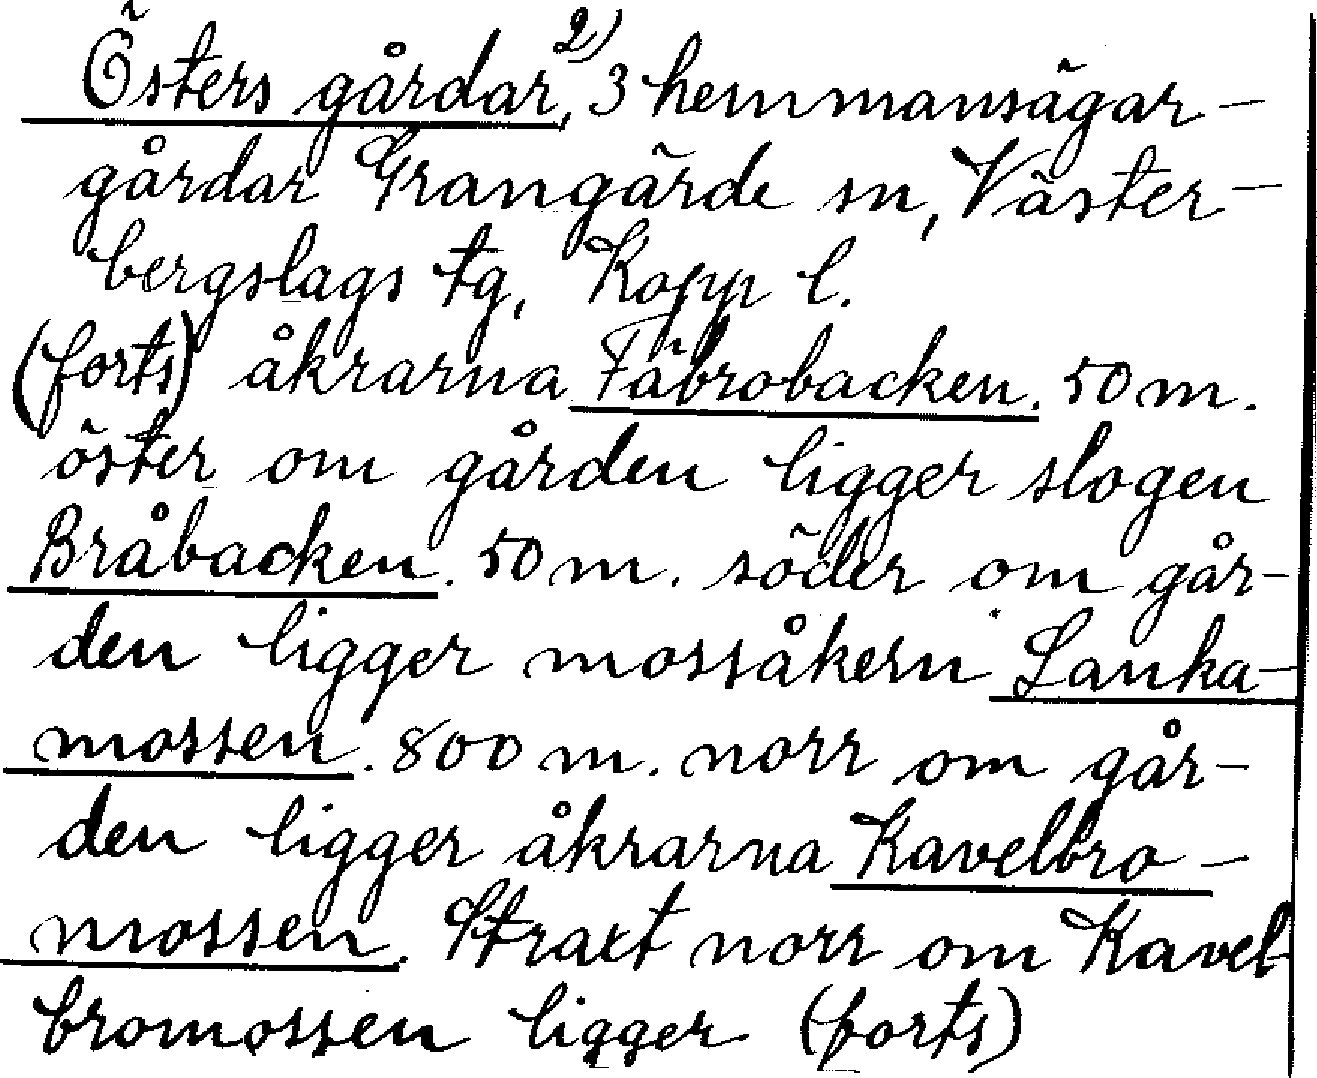 Östers gårdar,²⁾ 3 hemmansägar-
gårdar Grangärde sn, Väster-
bergslags tg, Kopp l.
(forts) åkrarna Fäbrobacken. 50 m.
öster om gården ligger slogen
Bråbacken. 50 m. söder om går-
den ligger mossåkern Lanka-
mossen. 800 m. norr om går-
den ligger åkrarna Kavelbro-
mossen. Straxt norr om Kavel-
bromossen ligger (forts)